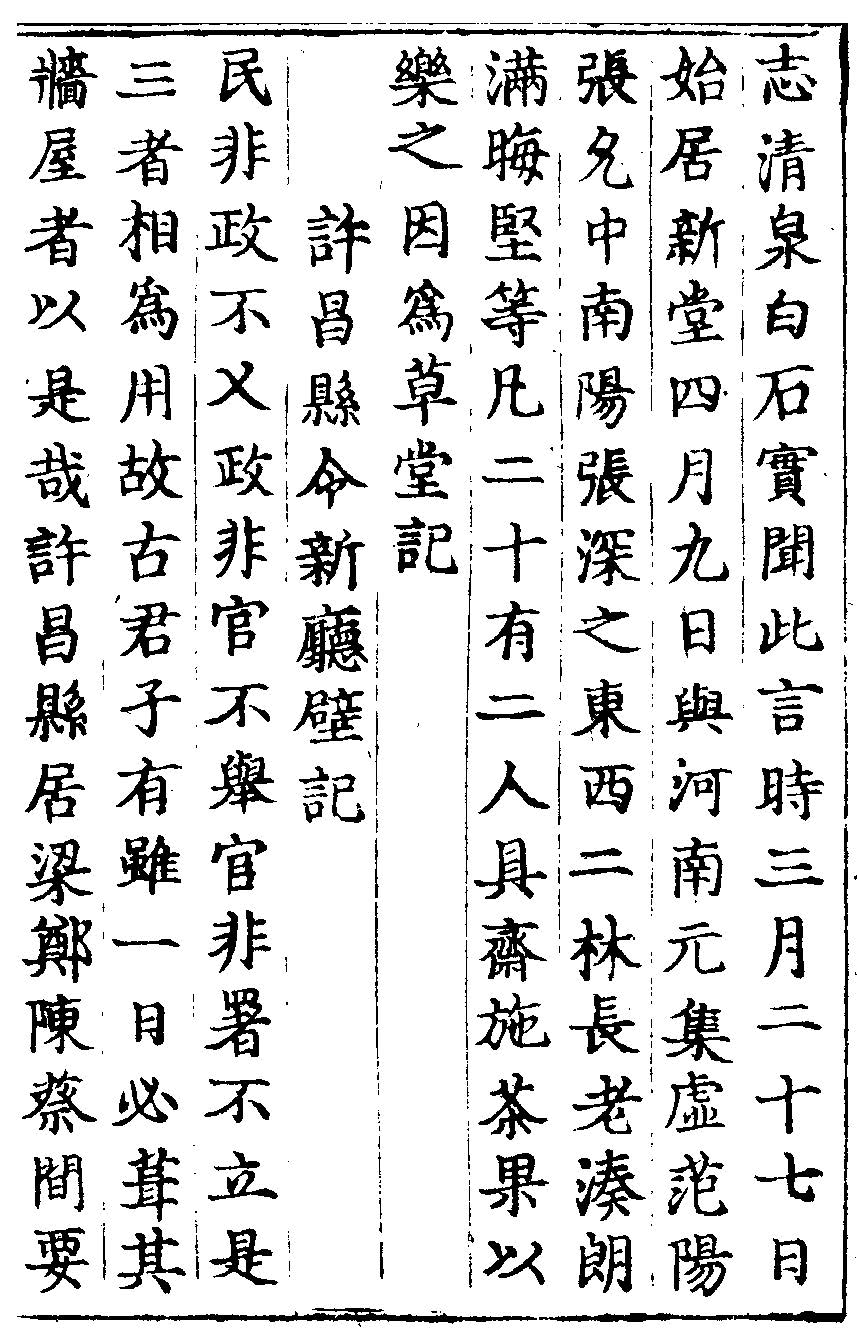 志清泉白石實聞此言時三月二十七日
始居新堂四月九日與河南元集虛范陽
張允中南陽張深之東西二林長老湊朗
滿晦堅等凡二十有二人具齋施茶果以
樂之因爲草堂記
許昌縣令新廳壁記
民非政不乂政非官不舉官非署不立是
三者相爲用故古君子有雖一日必葺其
牆屋者以是哉許昌縣居梁鄭陳蔡間要